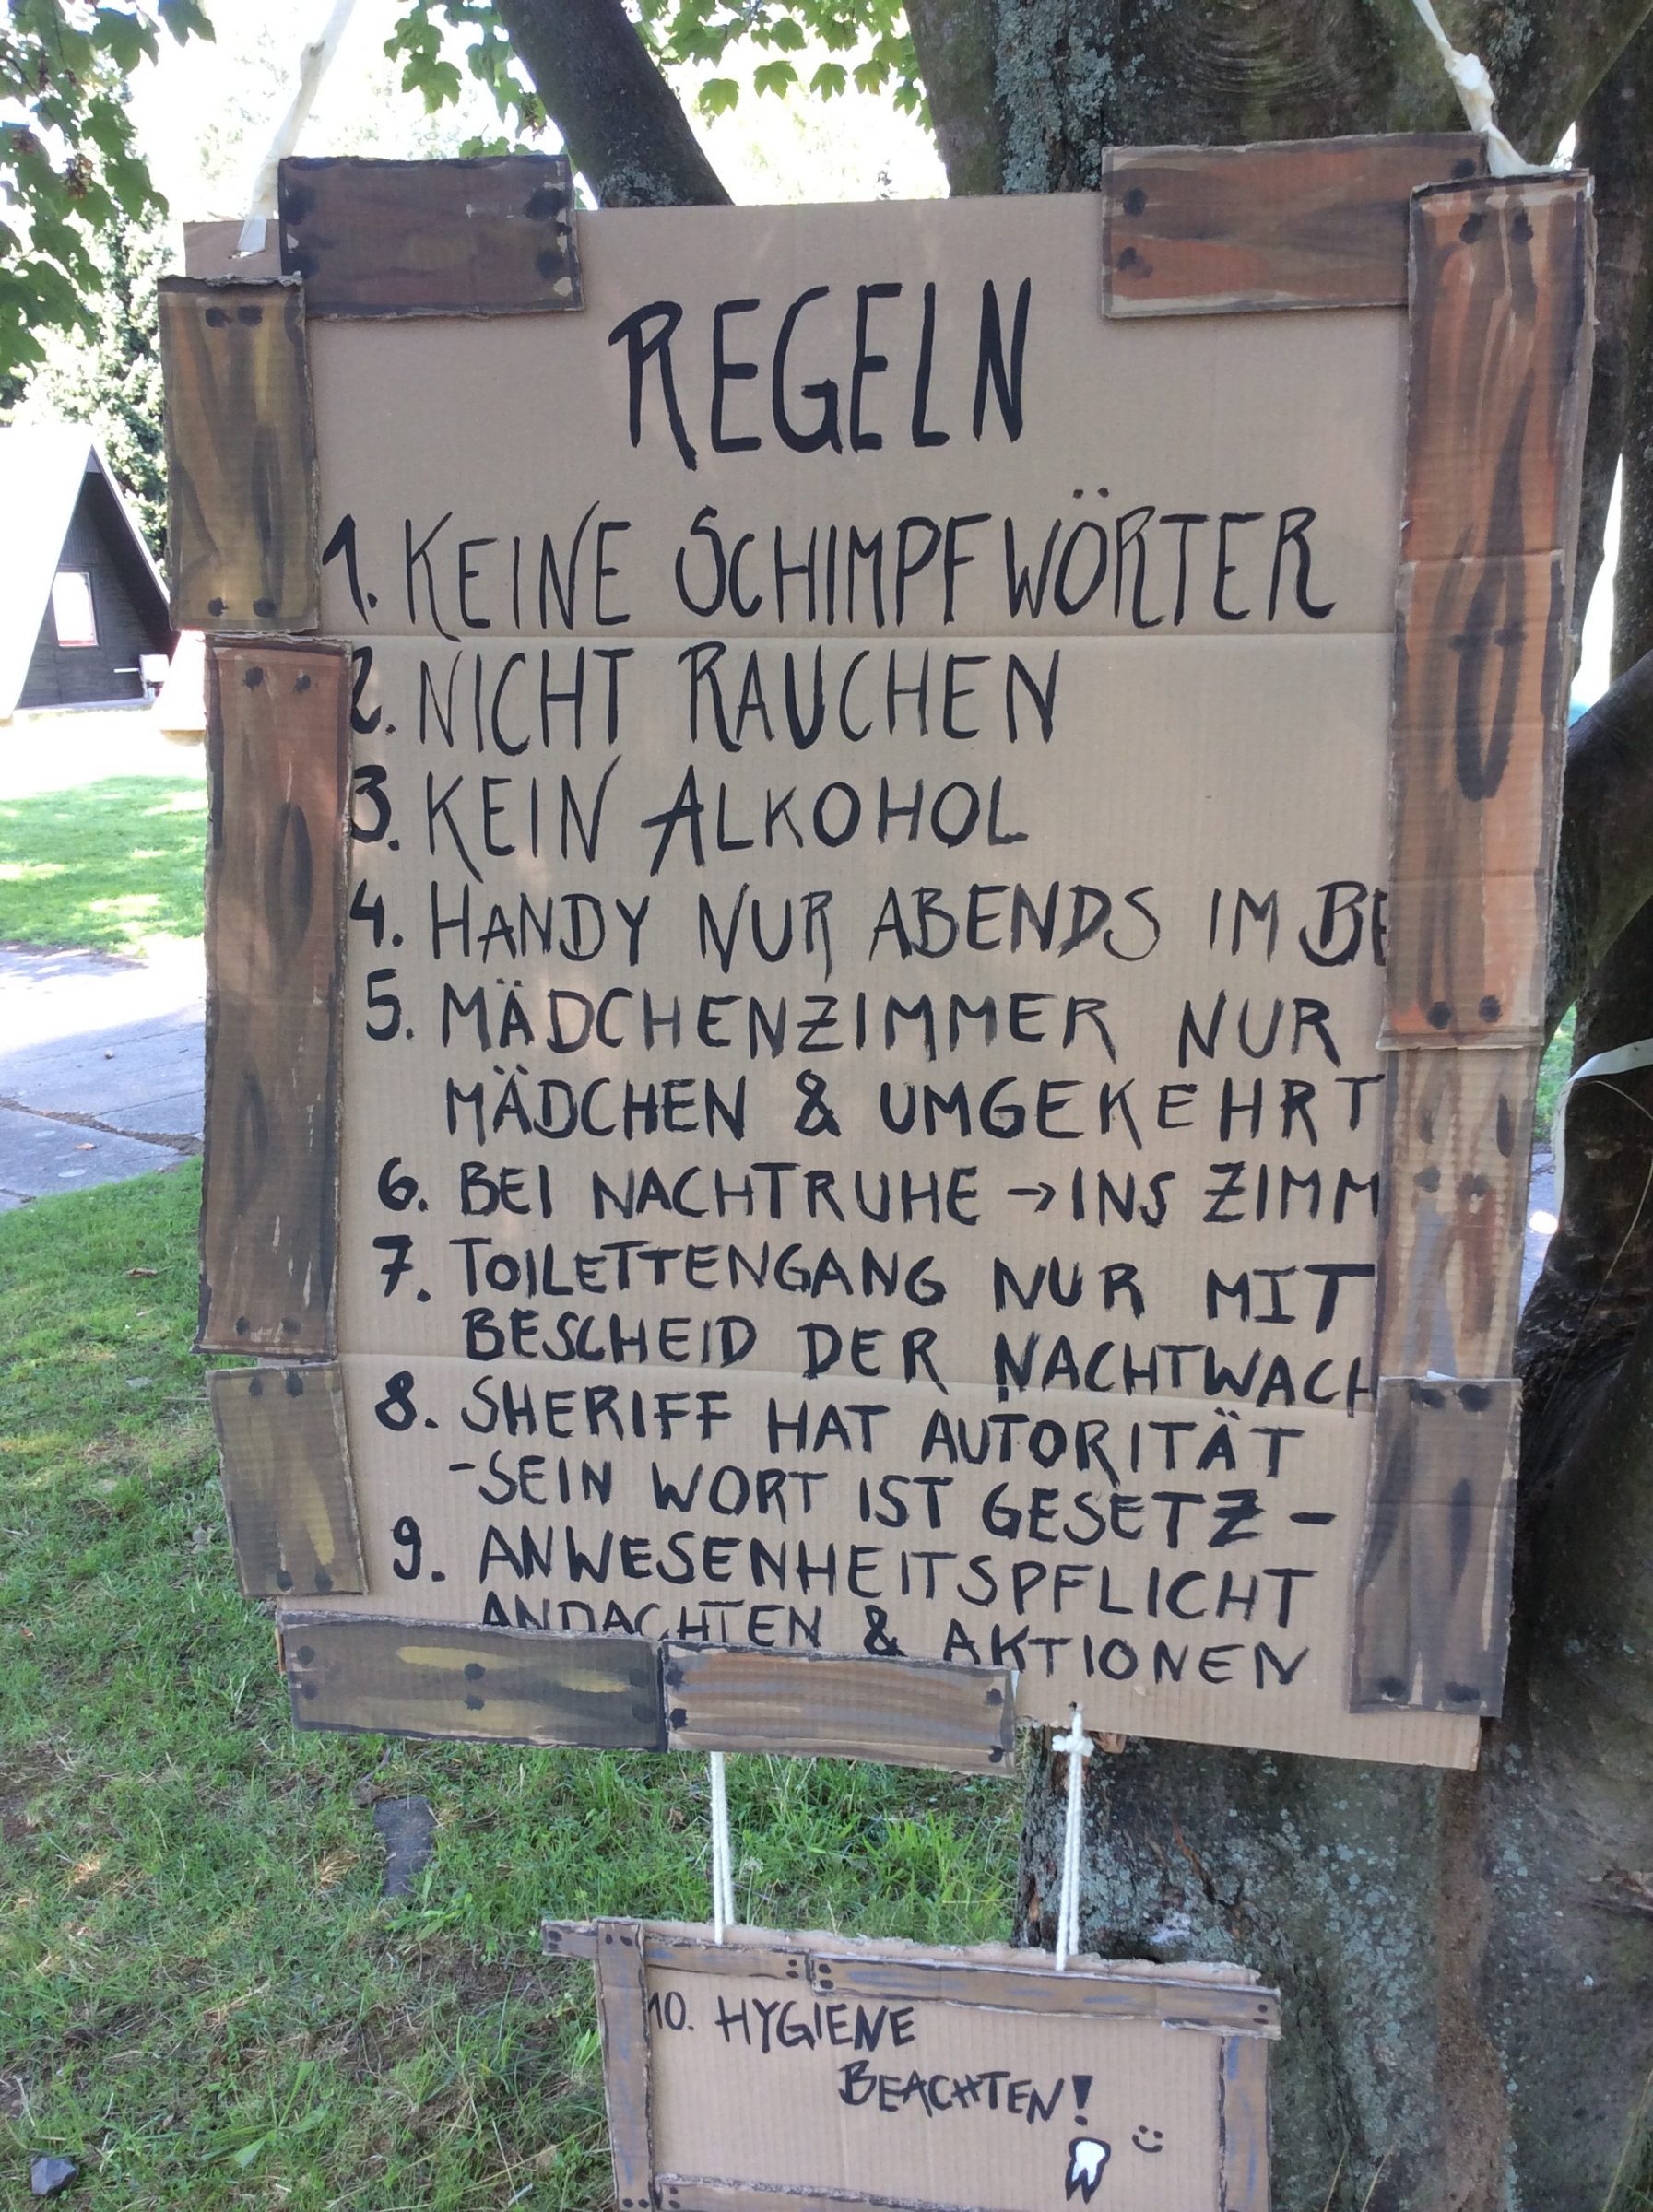 REGELN
1. KEINE SCHIMPFWÖRTER
2. NICHT RAUCHEN
3. KEIN ALKOHOL
4. HANDY NUR ABENDS IM
5. MÄDCHENZIMMER NUR
MÄDCHEN & UMGEKEHRT
6. BEI NACHTRUHE → INS ZIMM
7. TOILETTENGANG NUR MIT
BESCHEID DER NACHTWACH
8. SHERIFF HAT AUTORITÄT
- SEIN WORT IST GESETZ -
9. ANWESENHEITSPFLICHT
ANDACHTEN & AKTIONEN
10. HYGIENE
BEACHTEN!